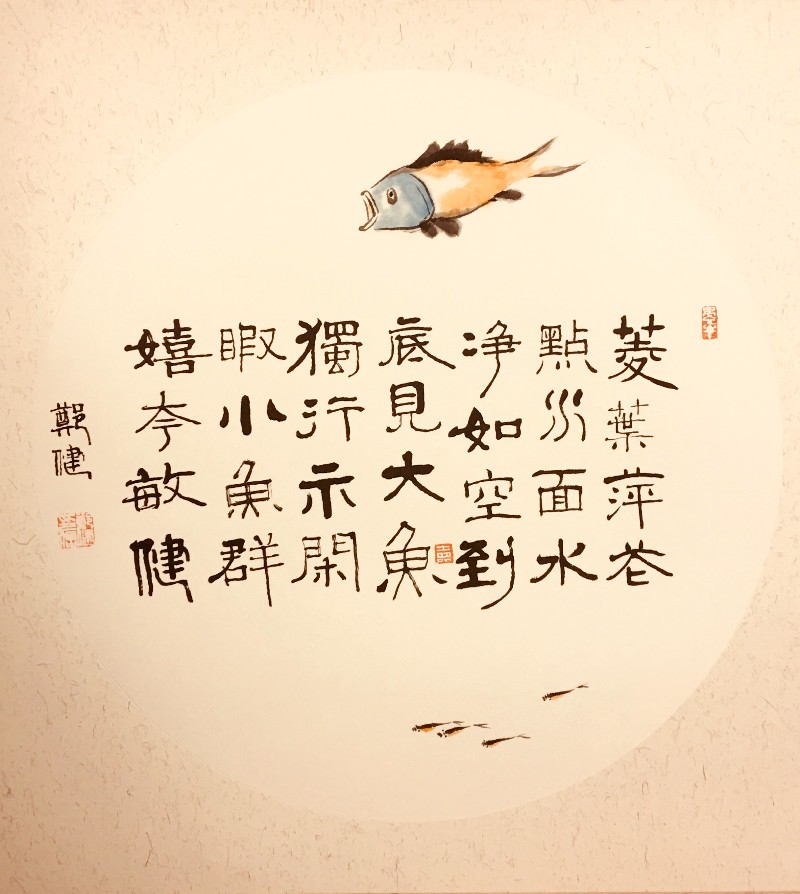 菱葉萍花
點水面水
净如空到
底見大魚
獨行示閑
暇小魚群
嬉夸敏健
鄭健